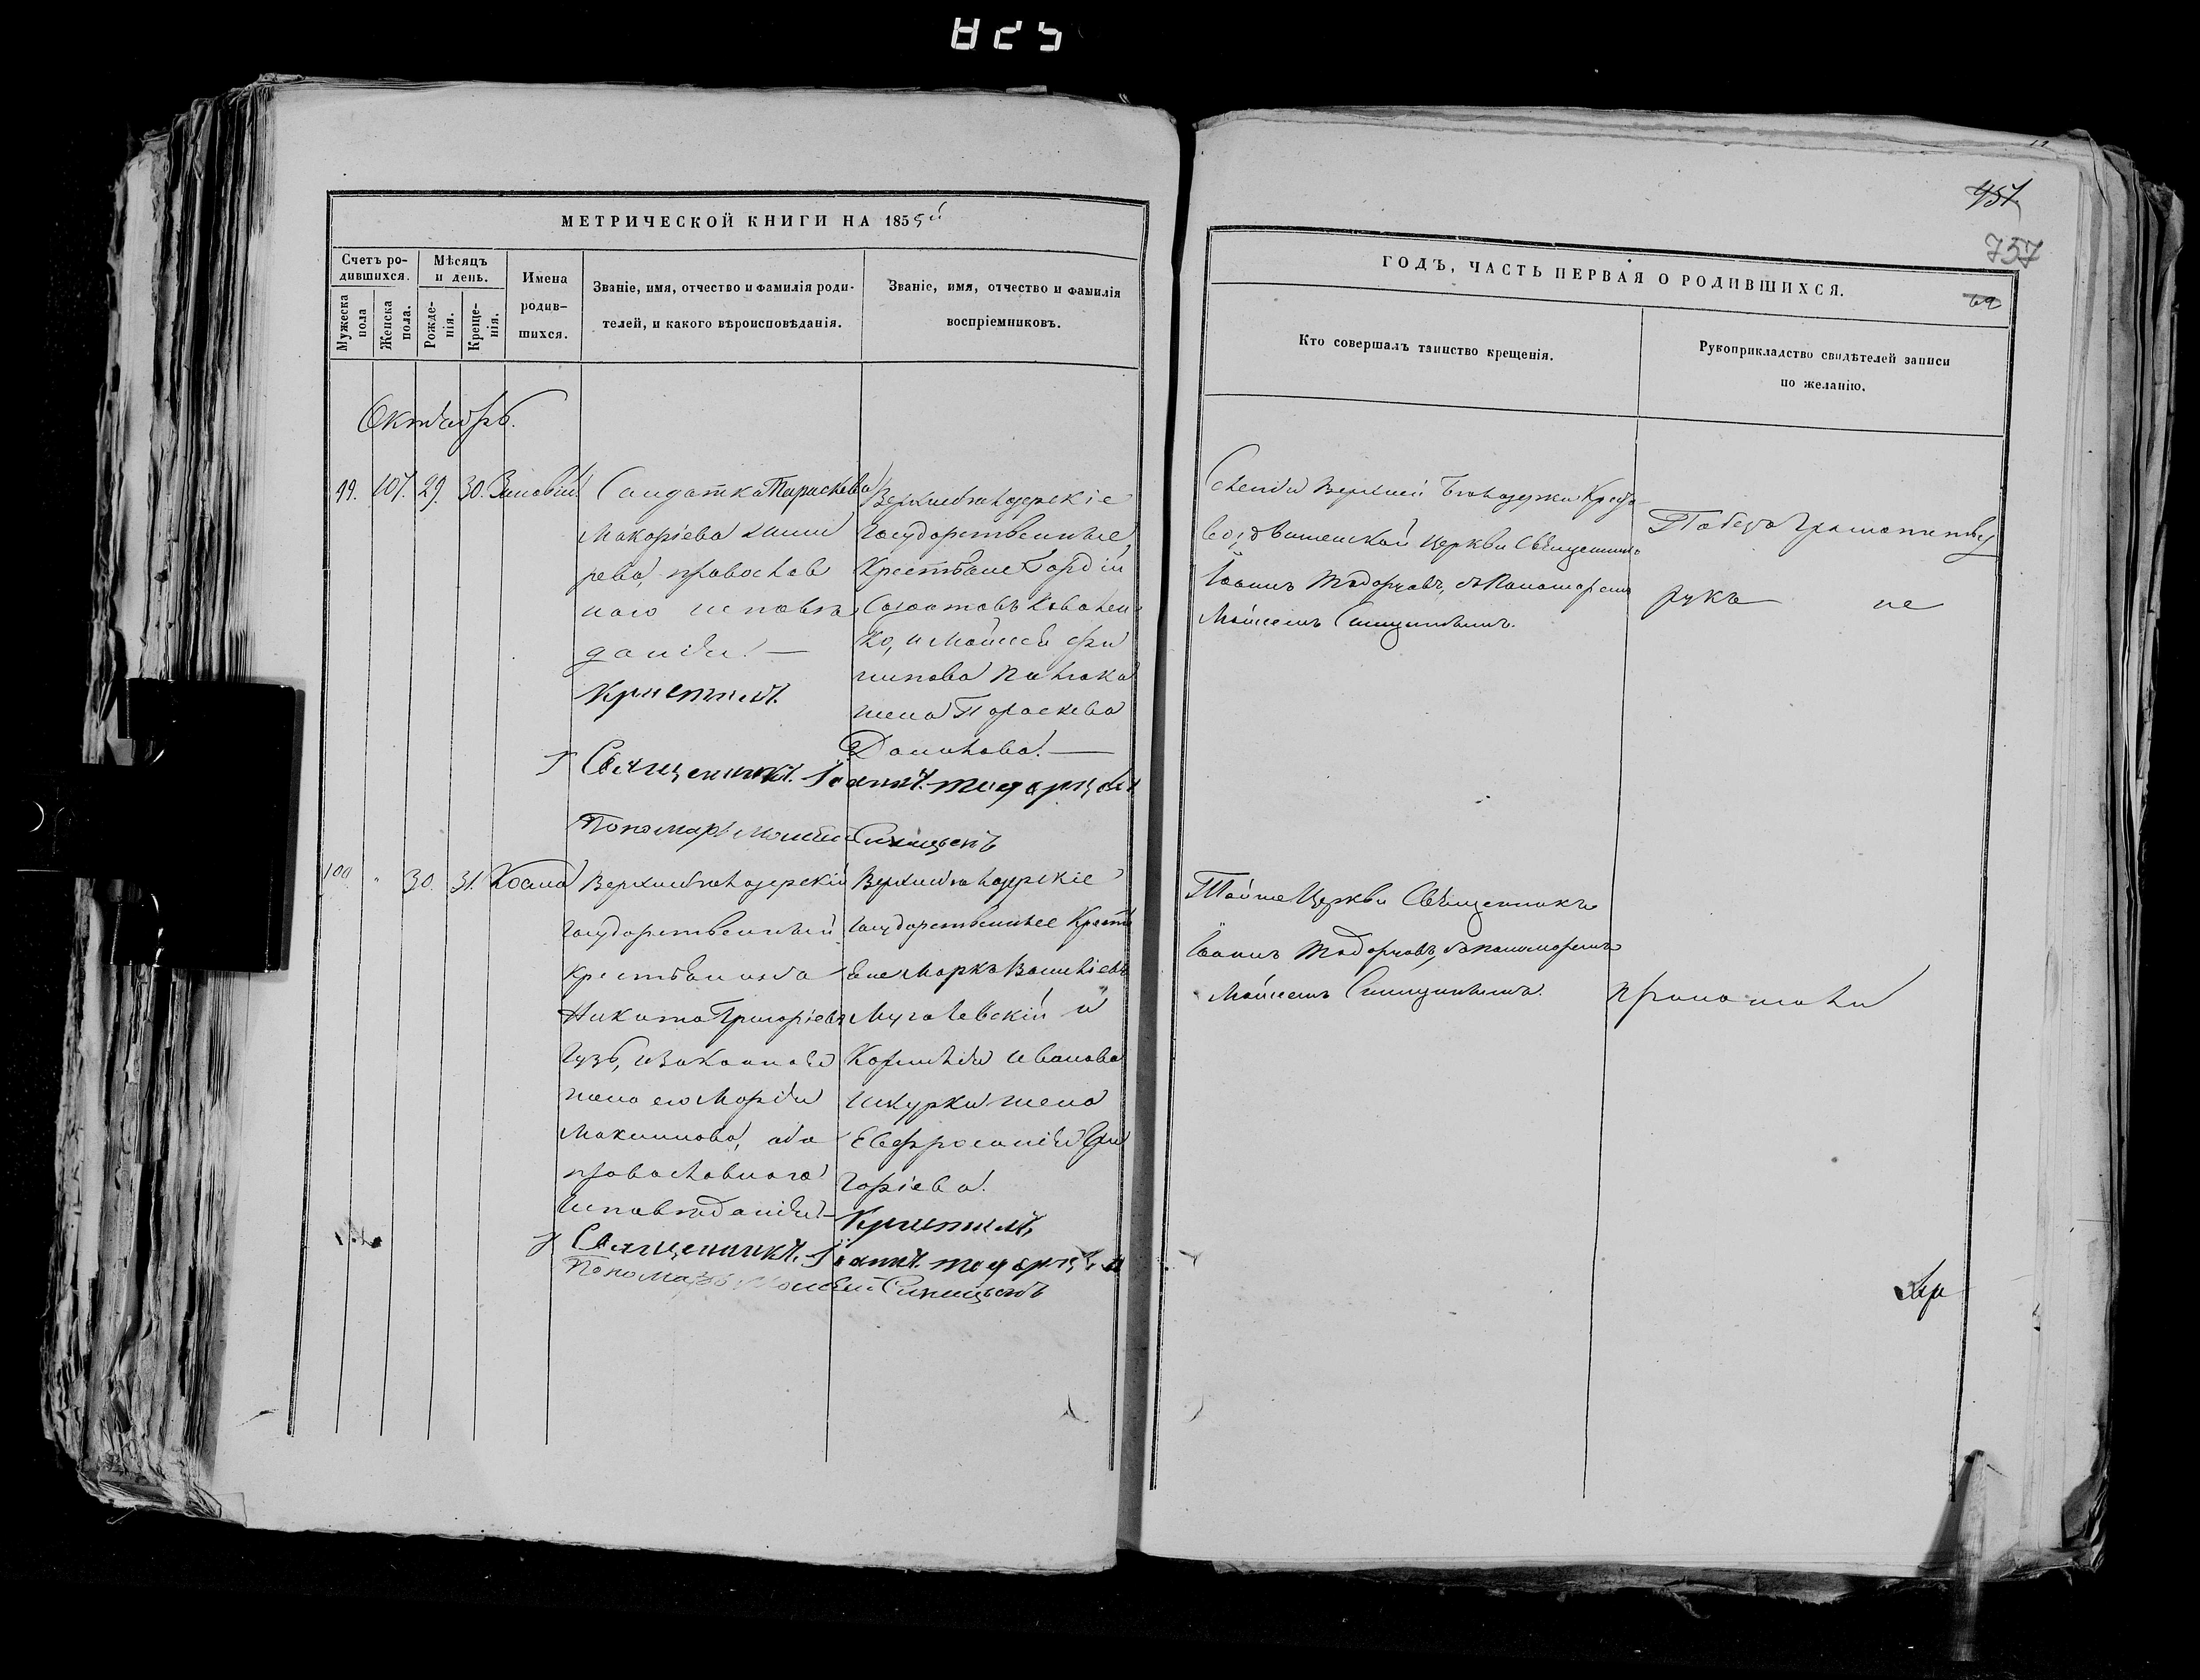 825
МЕТРИЧЕСКОЙ КНИГИ НА 1855й
Счетъ ро-
дившихся.
Мѣсяцъ
и день.
Мужеска
пола
Женска
пола.
Рожде-
нія.
Креще-
нія.
Имена
родив-
шихся.
Званіе, имя, отчество и фамилія роди-
телей, и какого вѣроисповѣданія.
Званіе, имя, отчество и фамилія
воспріемниковъ.
Октябрь.
99. 107. 29. 30. Зиновій
Солдатка Параскева
Макаріева
рева, православ
наго исповѣ
данія. —
Крестилъ
государственные
Крестьяне Гордій
Созонтовъ Ковален
ко, и Моисея Фи
липова
жена Параскева
Данилова. —
Священникъ Іоаннъ Тодорцовъ
Пономарь Моисей Синицынъ
100 " 30. 31. Косма
государственный
крестьянинъ
Никита Григоріевъ
Гузь, и законная
жена его Марія
Максимова, оба
православнаго
исповѣданія —
государственные Кресть
яне Маркъ Василіевъ
и
Корнилія Иванова
Шкурки жена
Евфросинія Гри
горіева.
Крестилъ
Священникъ Іоаннъ Тодорцовъ
Пономарь Моисей Синицынъ
457
757
69
ГОДЪ, ЧАСТЬ ПЕРВАЯ О РОДИВШИХСЯ.
Кто совершалъ таинство крещенія.
Рукоприкладство свидѣтелей записи
по желанію.
Слободы Верхней Кресто
воздвиженской Церкви Священникъ
Іоаннъ Тодорцовъ, съ Пономаремъ
Моисеемъ Синицынымъ.
По безграмотству
рукъ не
Тойже Церкви Священникъ
Іоаннъ Тодорцовъ, съ пономаремъ
Моисеемъ Синицынымъ.
прилагали